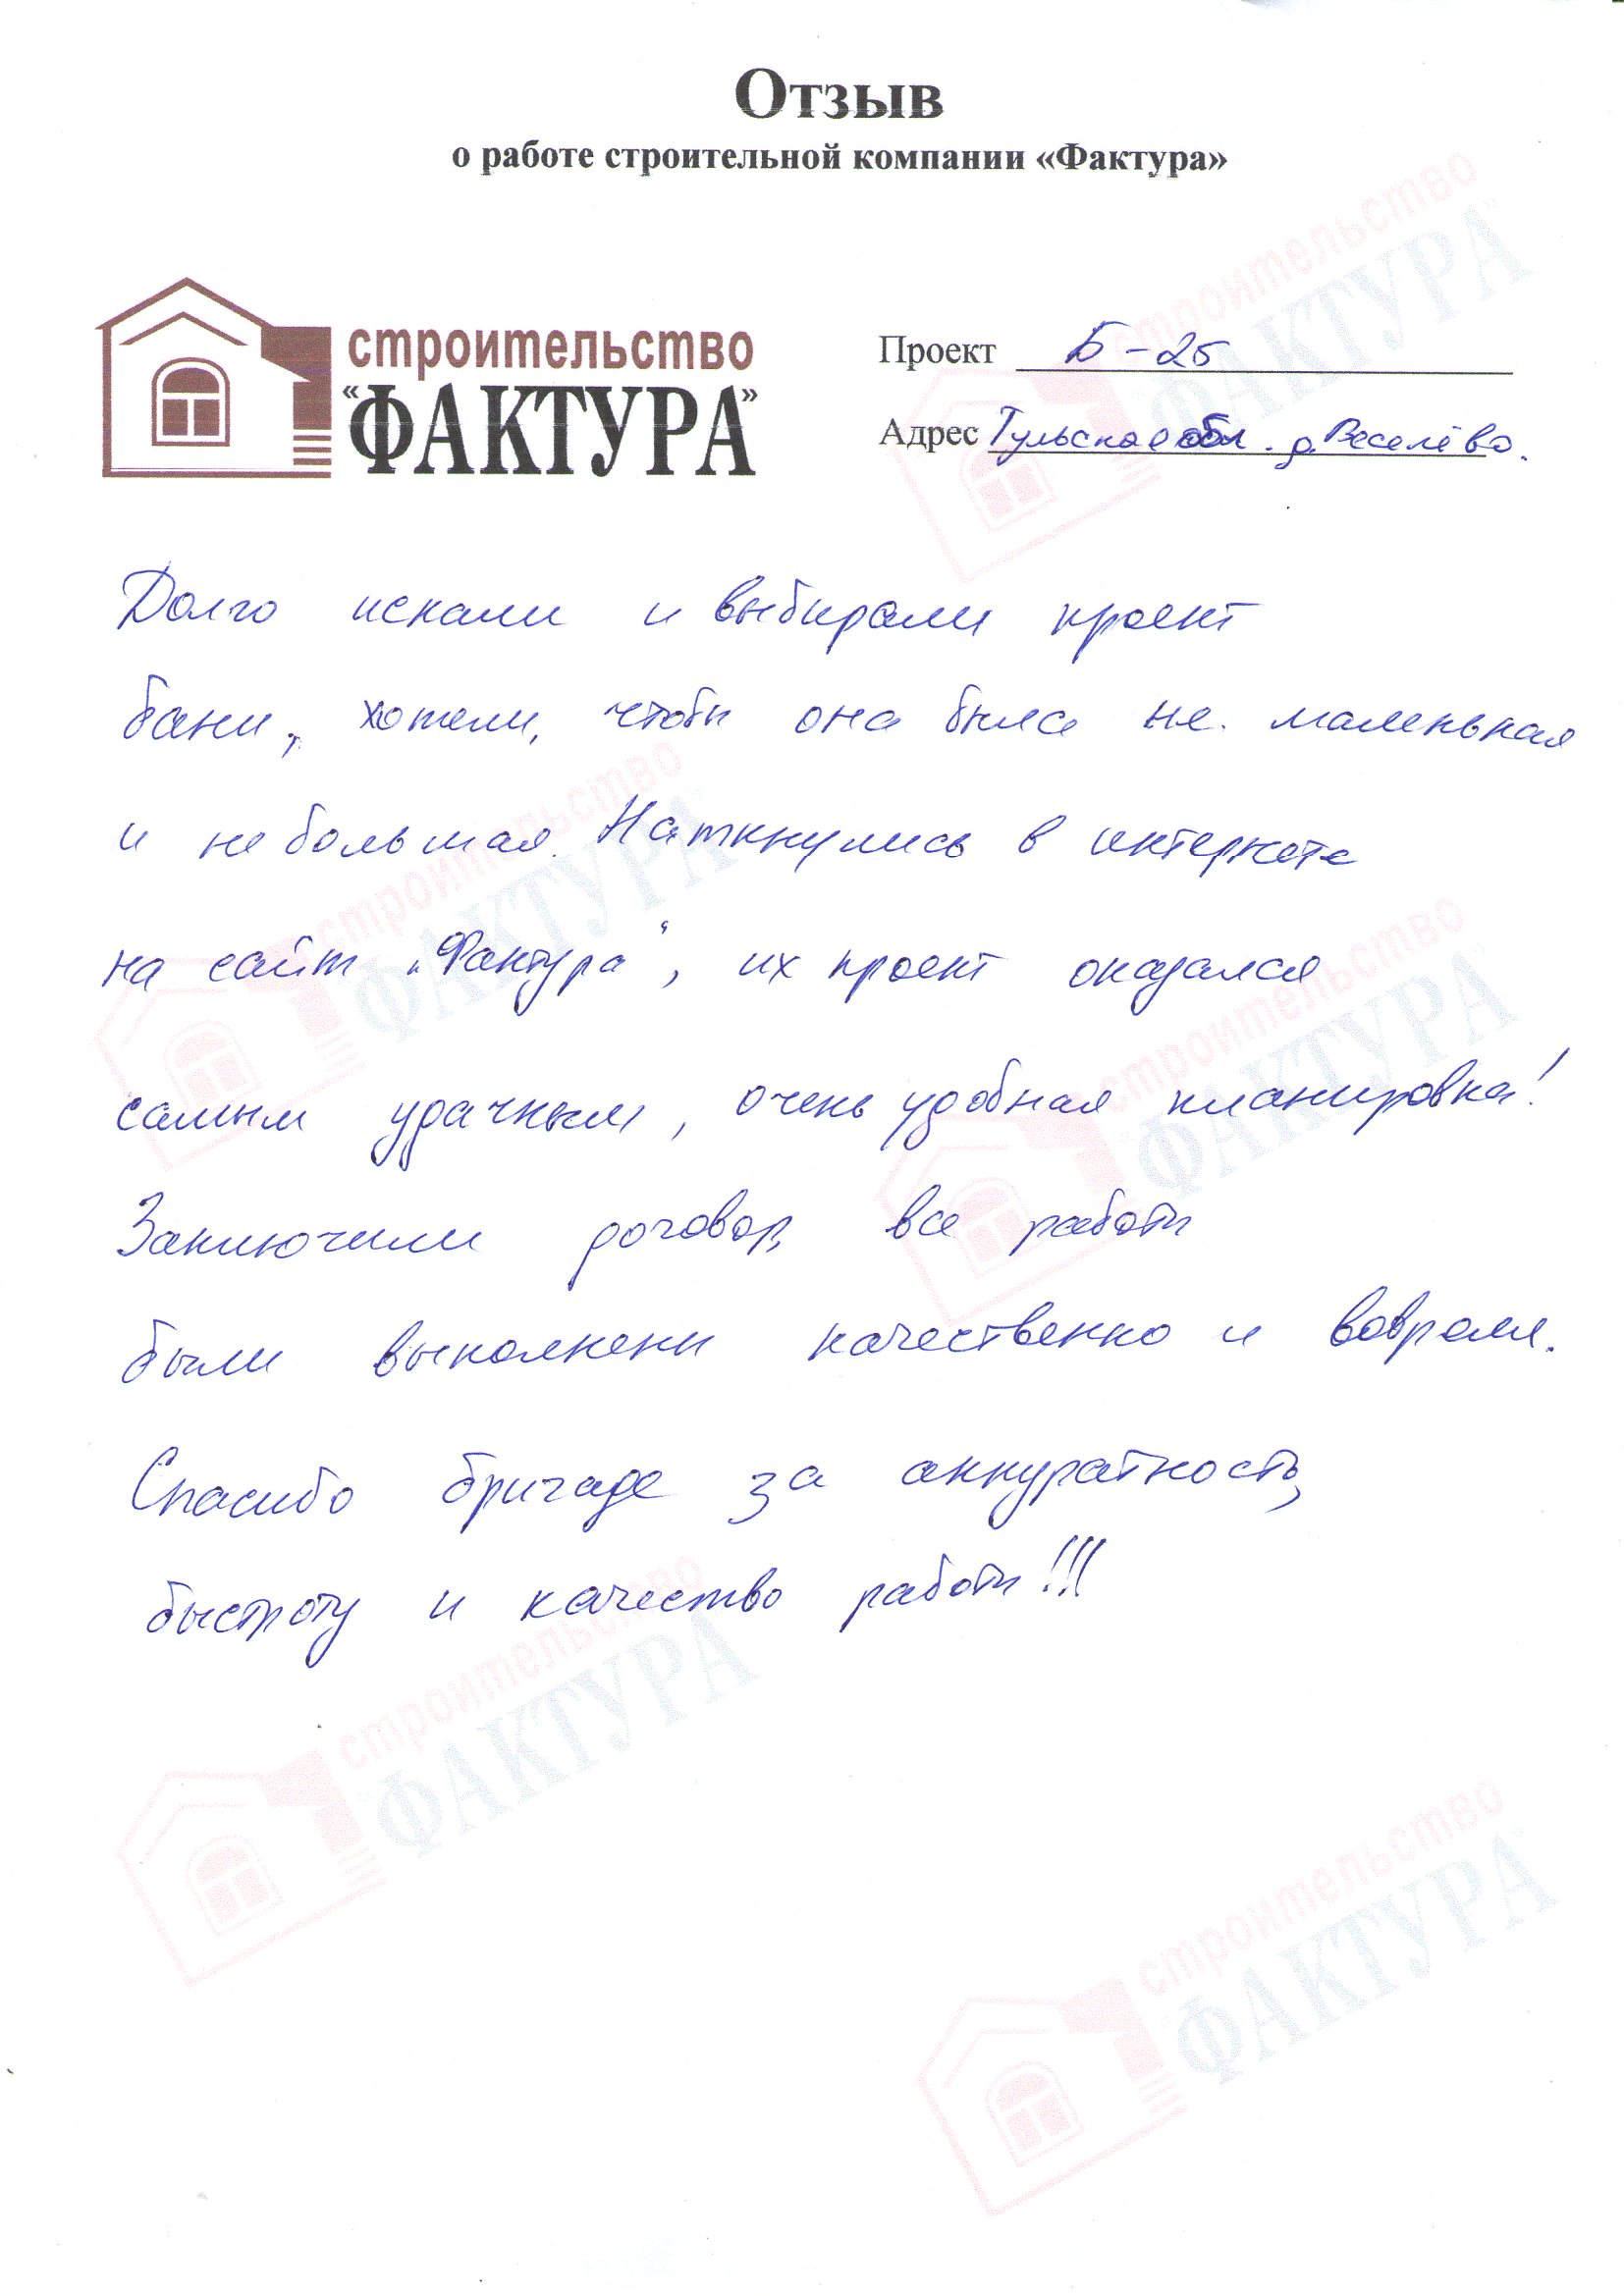 Отзыв
о работе строительной компании «Фактура»
строительство
"ФАКТУРА"
Проект Б-25
Адрес Тульская обл. д. Веселёво.
Долго искали и выбирали проект
бани, хотели, чтобы она была не маленькая
и не большая. Наткнулись в интернете
на сайт "Фактура", их проект оказался
самым удачным, очень удобная планировка!
Заключили договор, все работы
были выполнены качественно и вовремя.
Спасибо бригаде за аккуратность,
быстроту и качество работы!!!
строительство
ФАКТУРА
строительство
ФАКТУРА
строительство
ФАКТУРА
строительство
ФАКТУРА
строительство
ФАКТУРА